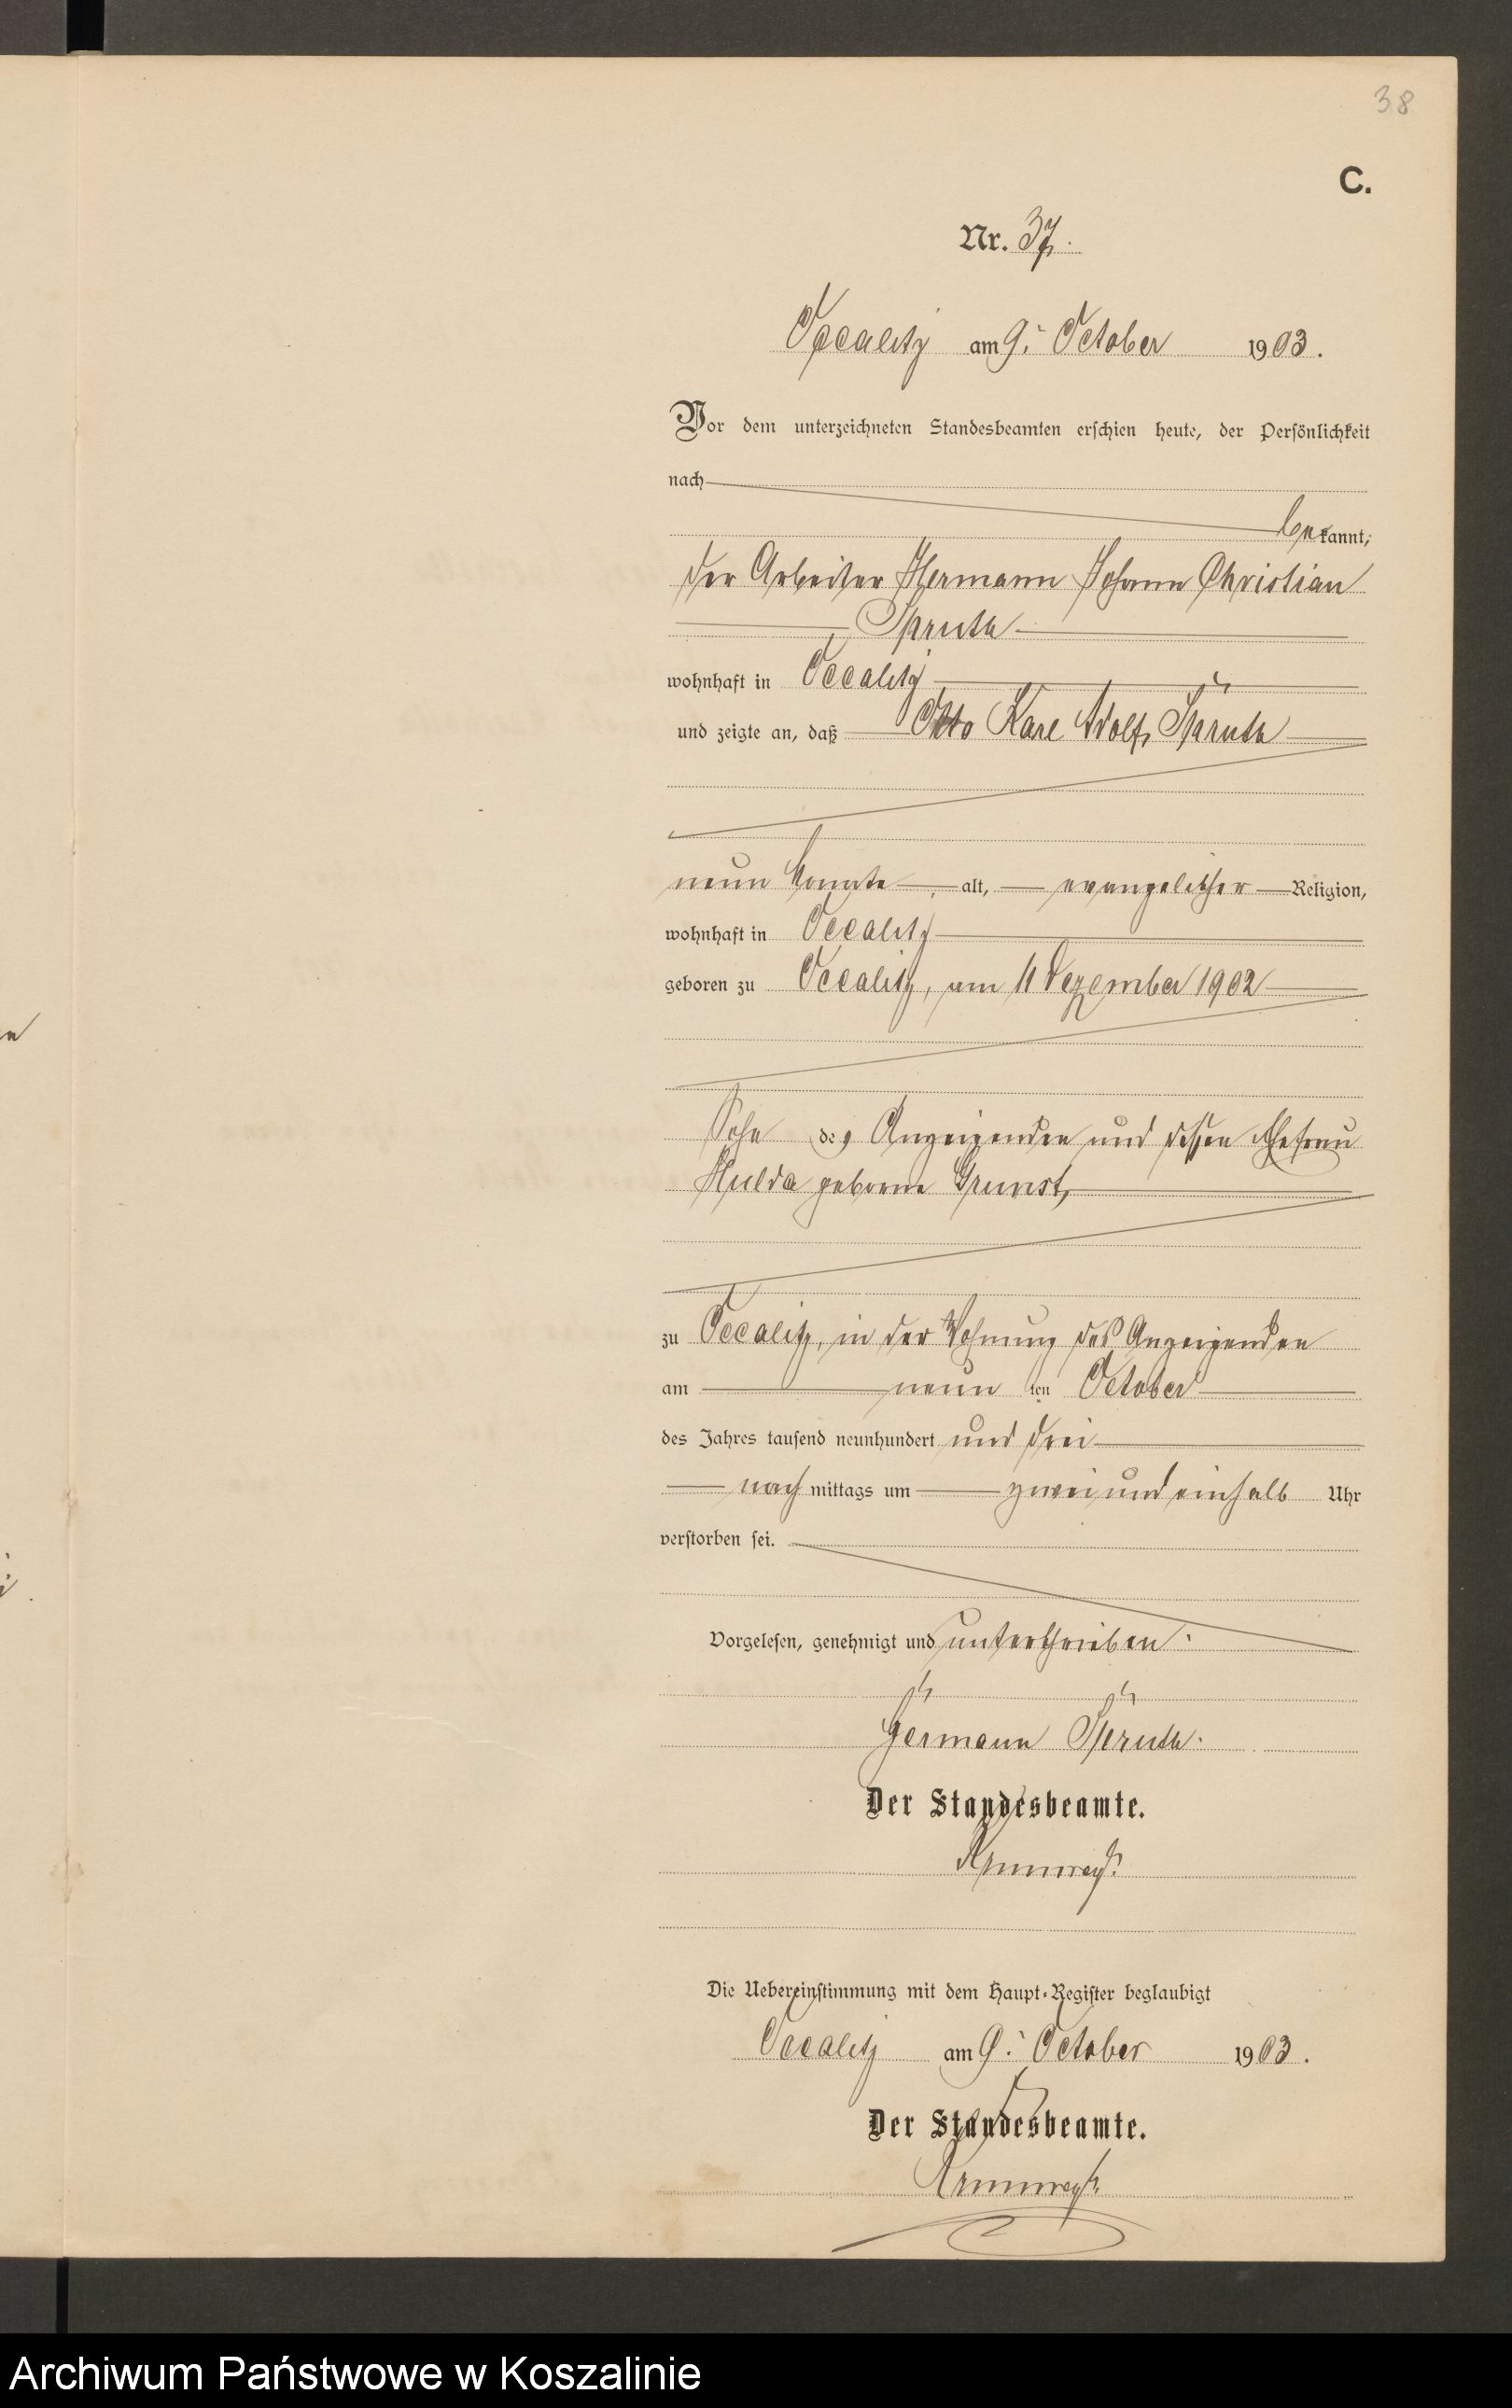 38
C.
Nr. 37.
Occalitz am 9. October 1903.
Vor dem unterzeichneten Standesbeamten erschien heute, der Persönlichkeit
nach
bekannt,
der Arbeiter Hermann Johann Christian
Spruth
wohnhaft in Occalitz
und zeigte an, daß Otto Karl Adolf Spruth
neun Monate alt, evangelischer Religion,
wohnhaft in Occalitz
geboren zu Occalitz, am 11 Dezember 1902
Sohn des Anzeigenden und dessen Ehefrau
Hulda geborene
zu Occalitz, in der Wohnung des Anzeigenden
am neun ten October
des Jahres tausend neunhundert und drei
nach mittags um zwei und einhalb Uhr
verstorben sei.
Vorgelesen, genehmigt und unterschrieben.
Hermann Spruth.
Der Standesbeamte.
Die Uebereinstimmung mit dem Haupt-Register beglaubigt
Occalitz am 9. October 1903.
Der Standesbeamte.
Archiwum Państwowe w Koszalinie